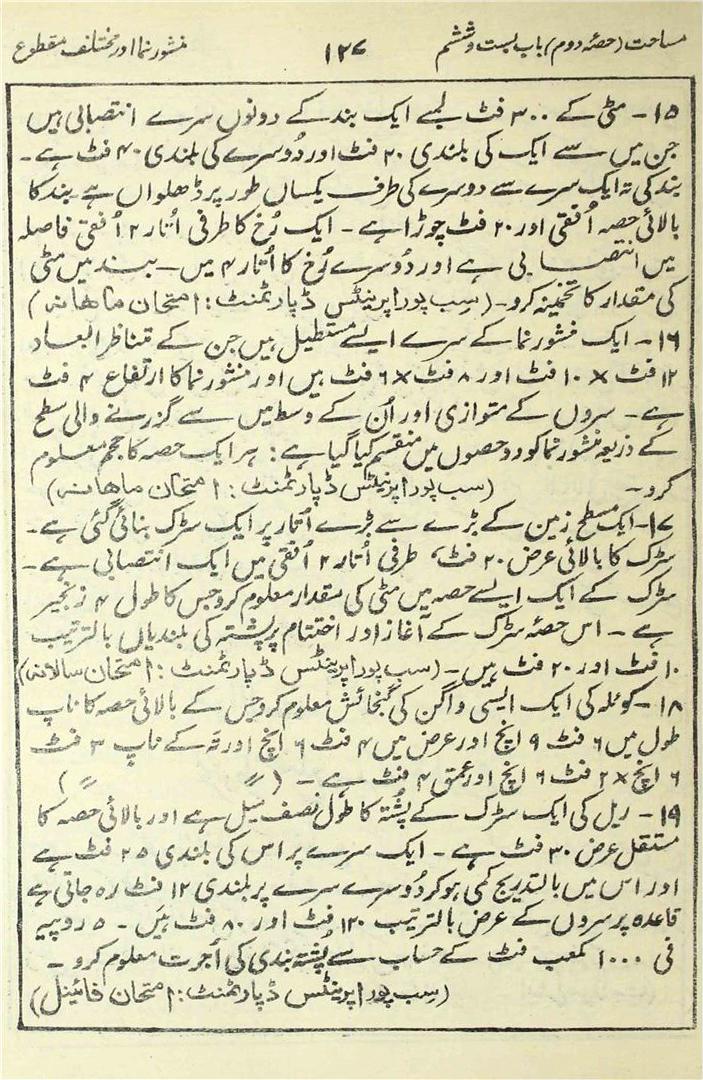 مساحت (حصہ دوم) باب بست و ششم ۱۲۷ منشور نما اور مختلف مقطوع
۱۵ - مٹی کے ۳۰۰ فٹ لمبے ایک بند کے دونوں سرے انتصابی ہیں
جن میں سے ایک کی بلندی ۲۰ فٹ اور دُوسرے کی بلندی ۴۰ فٹ ہے ۔
بند کی تہ ایک سرے سے دوسرے کی طرف یکساں طور پر ڈھلواں ہے بند کا
بالائی حصہ اُفقی اور ۲۰ فٹ چوڑا ہے ۔ ایک رُخ کا طرفی اُتار ۲ اُفقی فاصلہ
میں انتصابی ہے اور دُوسرے رُخ کا اُتار ۴ میں ۔ بند میں مٹی
کی مقدار کا تخمینہ کرو ۔ (سِب پور اپرینٹِس ڈپارٹمنٹ : امتحان ماھانہ)
۱۶ - ایک منشور نما کے سرے ایسے مستطیل ہیں جن کے متناظر ابعاد
۱۲ فٹ × ۱۰ فٹ اور ۸ فٹ × ۶ فٹ ہیں اور منشور نما کا ارتفاع ۴ فٹ
ہے ۔ سروں کے متوازی اور اُن کے وسط میں سے گزرنے والی سطح
کے ذریعہ منشور نما کو دو حصوں میں منقسم کیا گیا ہے : ہر ایک حصہ کا حجم معلوم
کرو ۔ (سب پور اپرینٹِس ڈپارٹمنٹ : امتحان ماھانہ)
۱۷ - ایک مسطح زمین کے بڑے سے بڑے اُتار پر ایک سڑک بنائی گئی ہے ۔
سڑک کا بالائی عرض ۲۰ فٹ، طرفی اُتار ۲ اُفقی میں ایک انتصابی ہے ۔
سڑک کے ایک ایسے حصہ میں مٹی کی مقدار معلوم کرو جس کا طول ۴ زنجیر
ہے ۔ اس حصۂ سڑک کے آغاز اور اختتام پر پشتہ کی بلندیاں بالترتیب
۱۰ فٹ اور ۲۰ فٹ ہیں ۔ (سب پور اپرینٹِس ڈپارٹمنٹ : امتحان سالانہ)
۱۸ - کوئلہ کی ایک ایسی واگن کی گنجائش معلوم کرو جس کے بالائی حصہ کا ناپ
طول میں ۶ فٹ ۹ اِنچ اور عرض میں ۴ فٹ ۶ اِنچ اور تہ کے ناپ ۳ فٹ
۶ اِنچ × ۲ فٹ ۶ اِنچ اور عمق ۴ فٹ ہے ۔ ( ″ ″ )
۱۹ - ریل کی ایک سڑک کے پُشتہ کا طول نصف میل ہے اور بالائی حصہ کا
مستقل عرض ۳۰ فٹ ہے ۔ ایک سرے پر اس کی بلندی ۲۵ فٹ ہے
اور اس میں بالتدریج کمی ہوکر دُوسرے سرے پر بلندی ۱۲ فٹ رہ جاتی ہے
قاعدہ پر سروں کے عرض بالترتیب ۱۲۰ فٹ اور ۸۰ فٹ ہیں ۔ ۵ روپیہ
فی ۱۰۰۰ مکعب فٹ کے حساب سے پُشتہ بندی کی اُجرت معلوم کرو ۔
(سِب پور اپرینٹِس ڈپارٹمنٹ : امتحان فائینل)